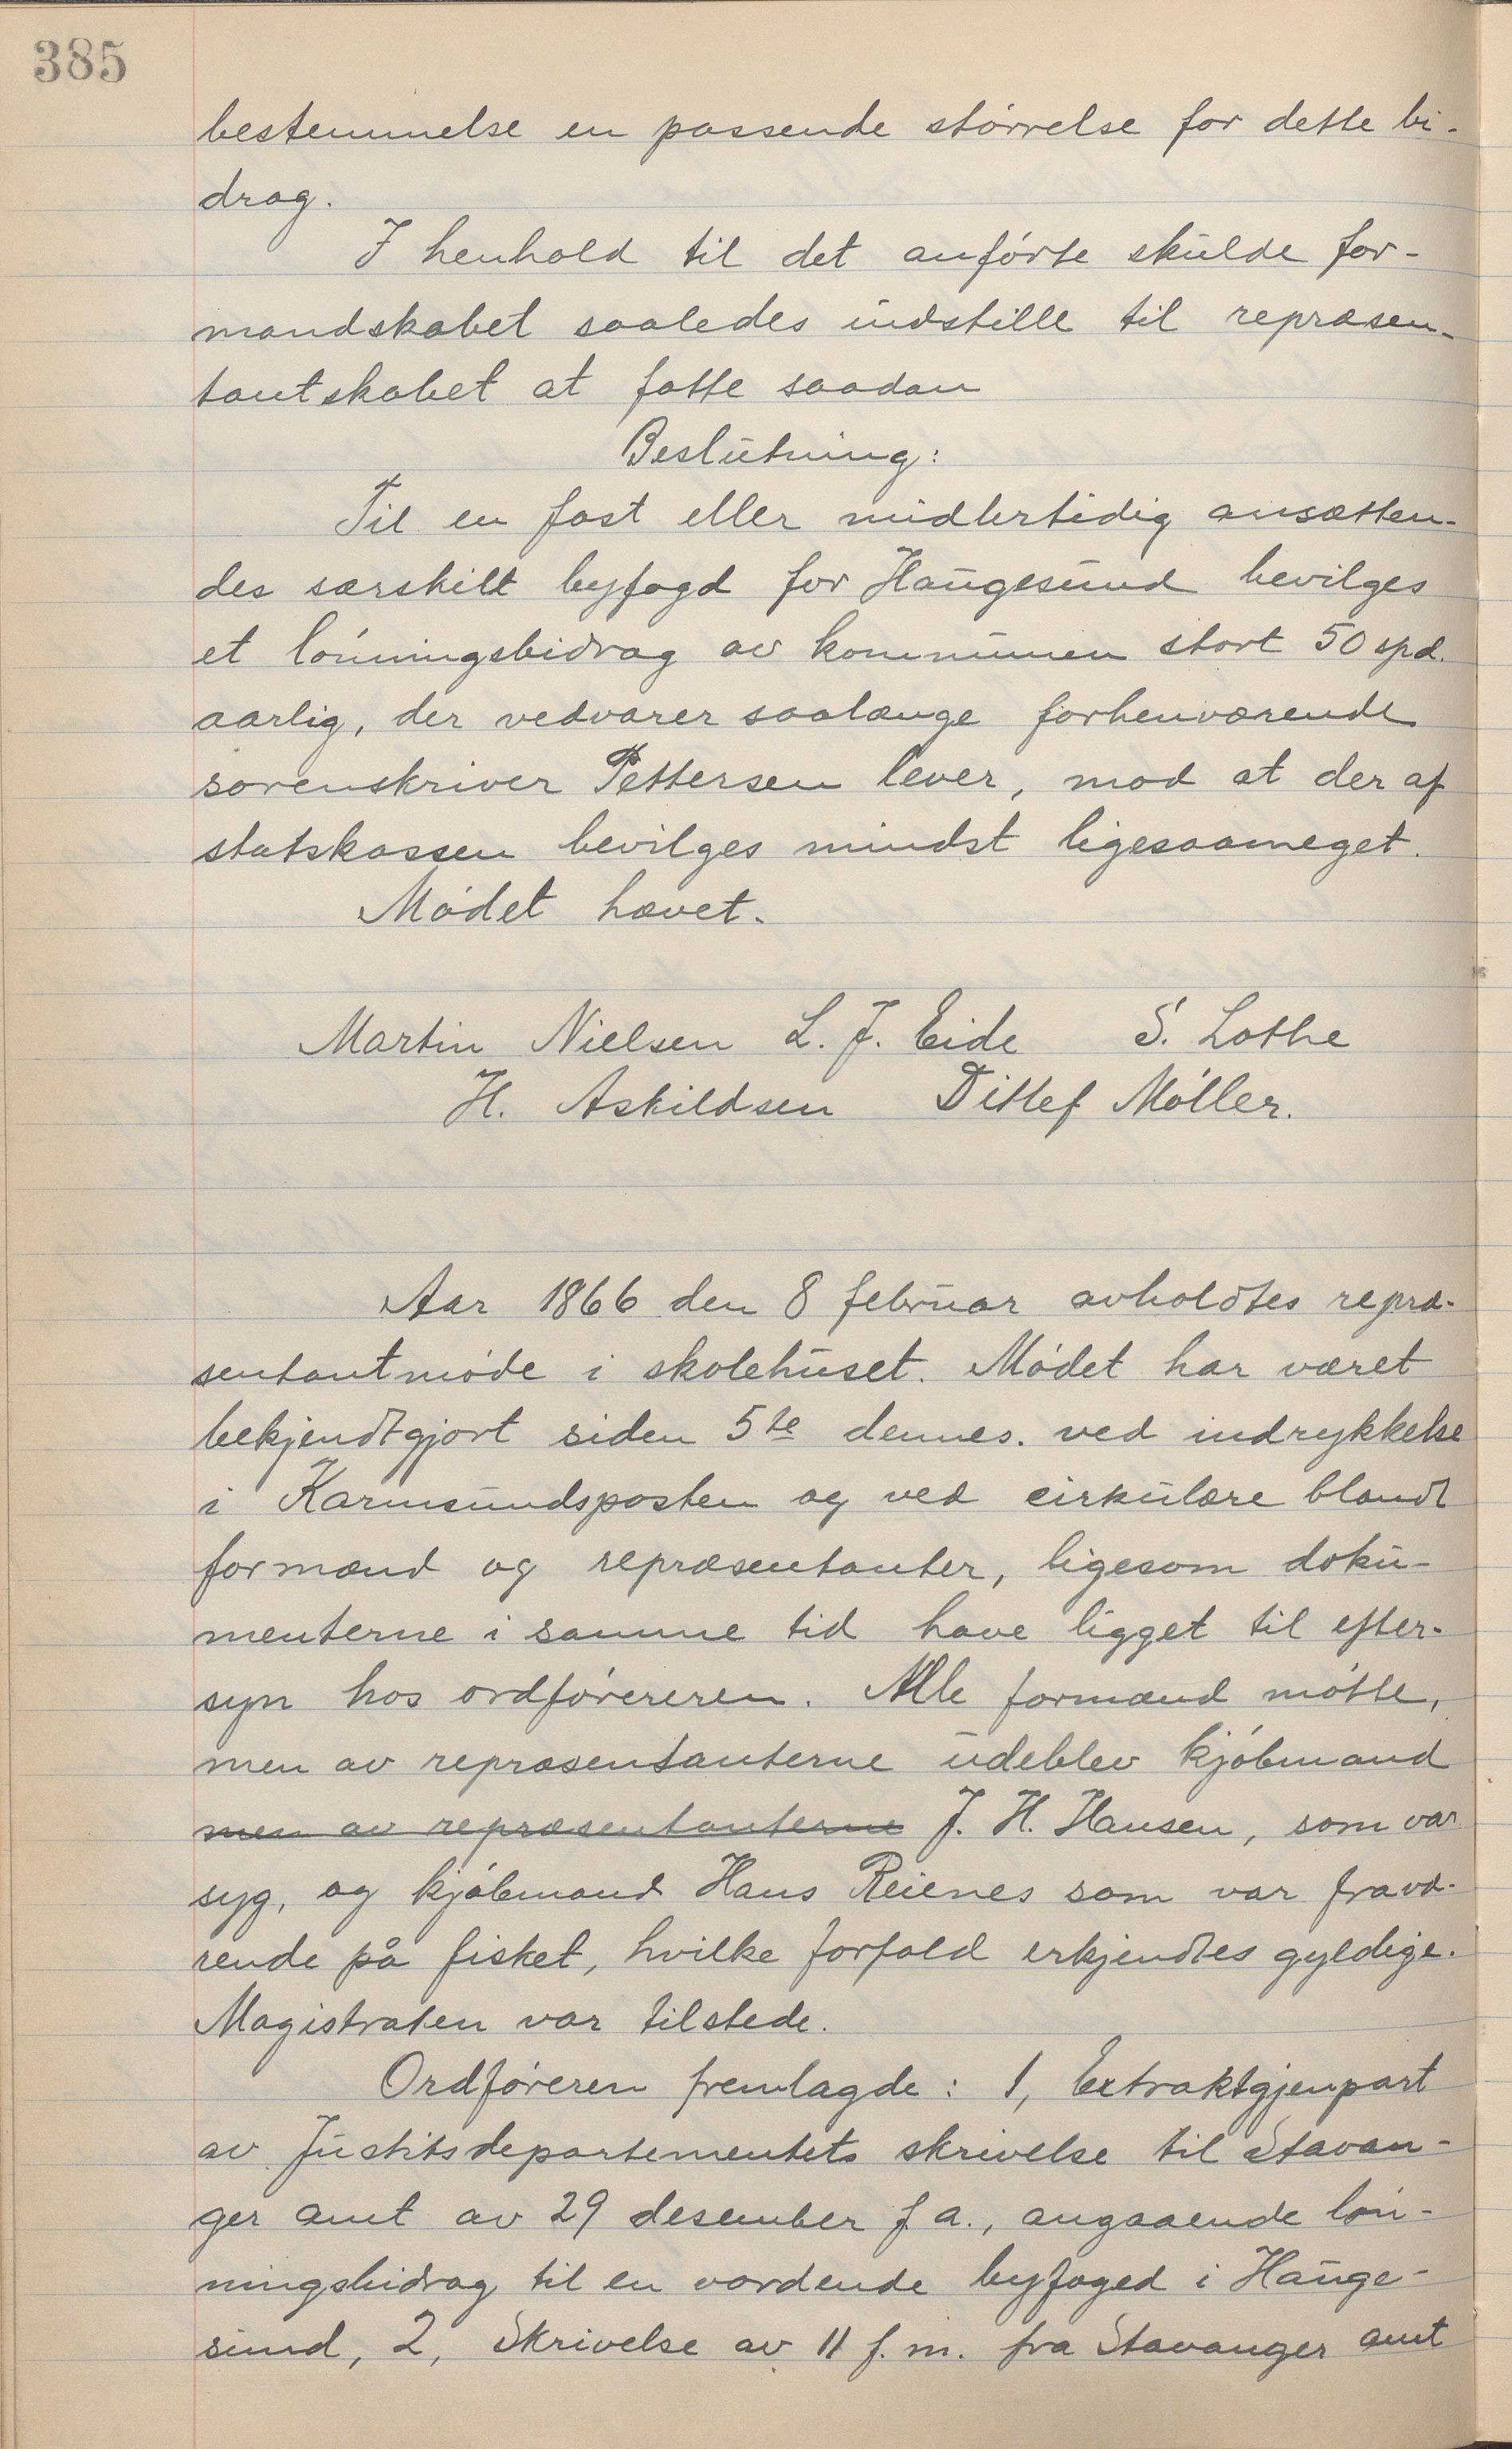 385
bestemmelse en passende størrelse for dette bi-
drag.
I henhold til det anførte skulde for-
mandskabet saaledes indstille til repræsen-
tantskabet at fatte saadan
Beslutning:
Til en fast eller midlertidig ansætten-
des særskilt byfogd for Haugesund bevilges
et lønningsbidrag av kommunen stort 50 spd.
aarlig, der vedvarer saalænge forhenværende
sorenskriver Pettersen lever, mod at der af
statskassen bevilges mindst ligesaameget.
Mødet hævet.
Martin Nielsen L. J. Eide S. Lothe
H. Askildsen Ditlef Møller.
Aar 1866 den 8 februar avholdtes repræ-
sentantmøde i skolehuset. Mødet har været
bekjendtgjort siden 5te dennes. ved indrykkelse
i Karmsundsposten og ved cirkulære blandt
formænd og repræsentanter, ligesom doku-
menterne i samme tid have ligget til efter-
syn hos ordførereren. Alle formænd møtte,
men av repræsentanterne udeblev kjøbmand
men av repræsentanterne J. H. Hansen, som var
syg, og kjøbmand Hans Reienes som var fravæ-
rende på fisket, hvilke forfald erkjendtes gyldige.
Magistraten var tilstede.
Ordføreren fremlagde: 1, Extraktgjenpart
av Justitsdepartementets skrivelse til Stavan-
ger amt av 29 desember f. a., angaaende løn-
ningsbidrag til en vordende byfoged i Hauge-
sund, 2, Skrivelse av 11 f. m. fra Stavanger amt